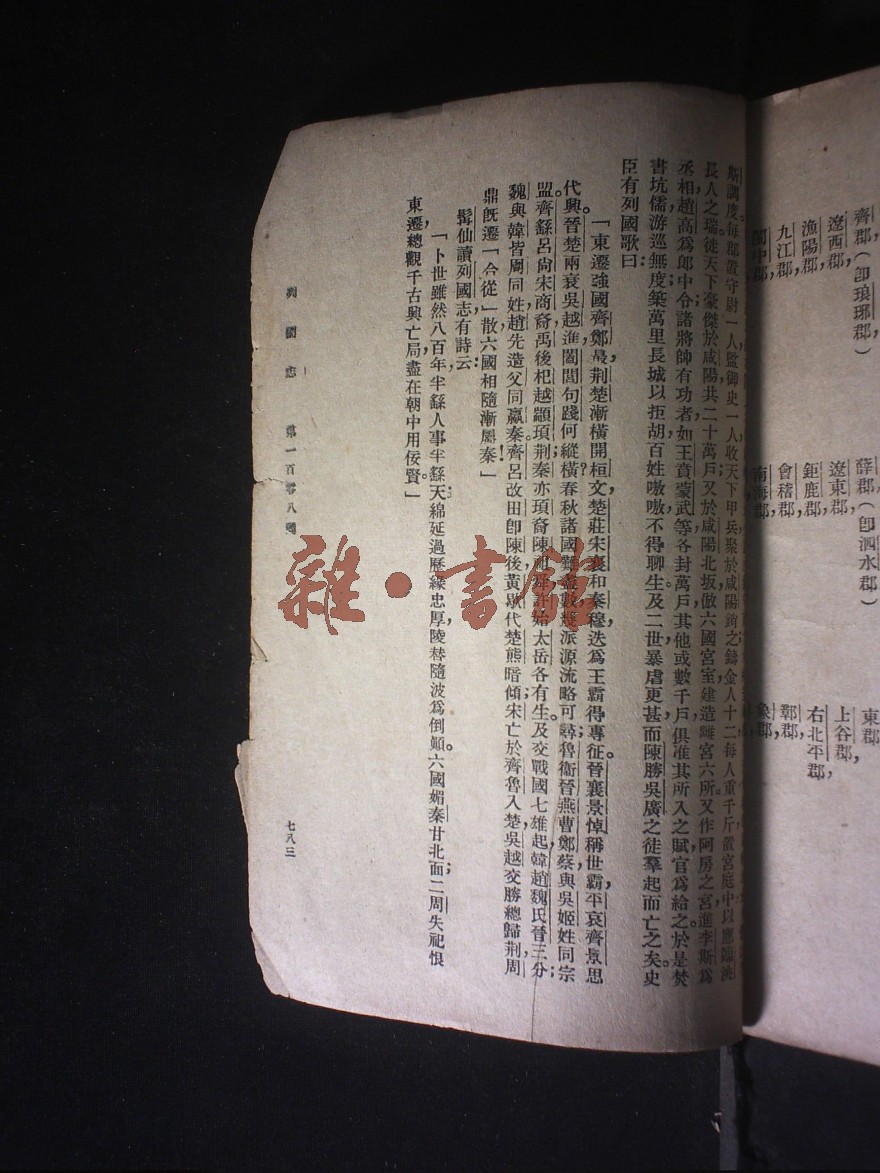 齊郡(卽琅琊郡)
薛郡(卽泗水郡)
東郡,
遼西郡,
遼東郡,
上谷郡,
漁陽郡,
鉅鹿郡,
右北平郡,
九江郡,
會稽郡,
鄣郡,
閩中郡,
南海郡,
象郡,
斯調度每郡置守尉一人監御史一人收天下甲兵聚於咸陽銷之鑄金人十二每人重千斤置宮庭中以應臨洮
長人之瑞。徙天下豪傑於咸陽共二十萬戶又於咸陽北坂倣六國宮室建造離宮六所。又作阿房之宮進李斯爲
丞相,趙高爲郎中令諸將帥有功者如王賁蒙武等各封萬戶其他或數千戶俱准其所入之賦官爲給之。於是焚
書坑儒,游巡無度;築萬里長城以拒胡百姓嗷嗷,不得聊生。及二世暴虐更甚,而陳勝吳廣之徒羣起而亡之矣史
臣有列國歌曰:
「東遷強國齊鄭最,荆楚漸橫開桓文,楚莊宋襄和秦穆,迭爲王霸得專征。晉襄景悼稱世霸,平哀齊景思
代興。晉楚兩衰吳越進,闔閭句踐何縱橫?春秋諸國難盡數,幾派源流略可尋;魯衞晉燕曹鄭蔡,與吳姬姓同宗
盟。齊繇呂尙宋商裔,禹後杞越顓頊荆;秦亦頊裔陳祖舜,許始太岳各有生。及交戰國七雄起,韓趙魏氏晉三分;
魏與韓皆周同姓,趙先造父同嬴秦。齊呂改田卽陳後,黃歇代楚熊暗傾;宋亡於齊魯入楚,吳越交勝總歸荆。周
鼎旣遷「合從」散,六國相隨漸屬秦!」
髯仙讀列國志有詩云:
「卜世雖然八百年,半繇人事半繇天;綿延過曆緣忠厚,陵替隨波爲倒顚。六國媚秦甘北面,二周失祀恨
東遷;總觀千古興亡局,盡在朝中用佞賢。」
列國志 第一百零八囘 七八三
雜·書館